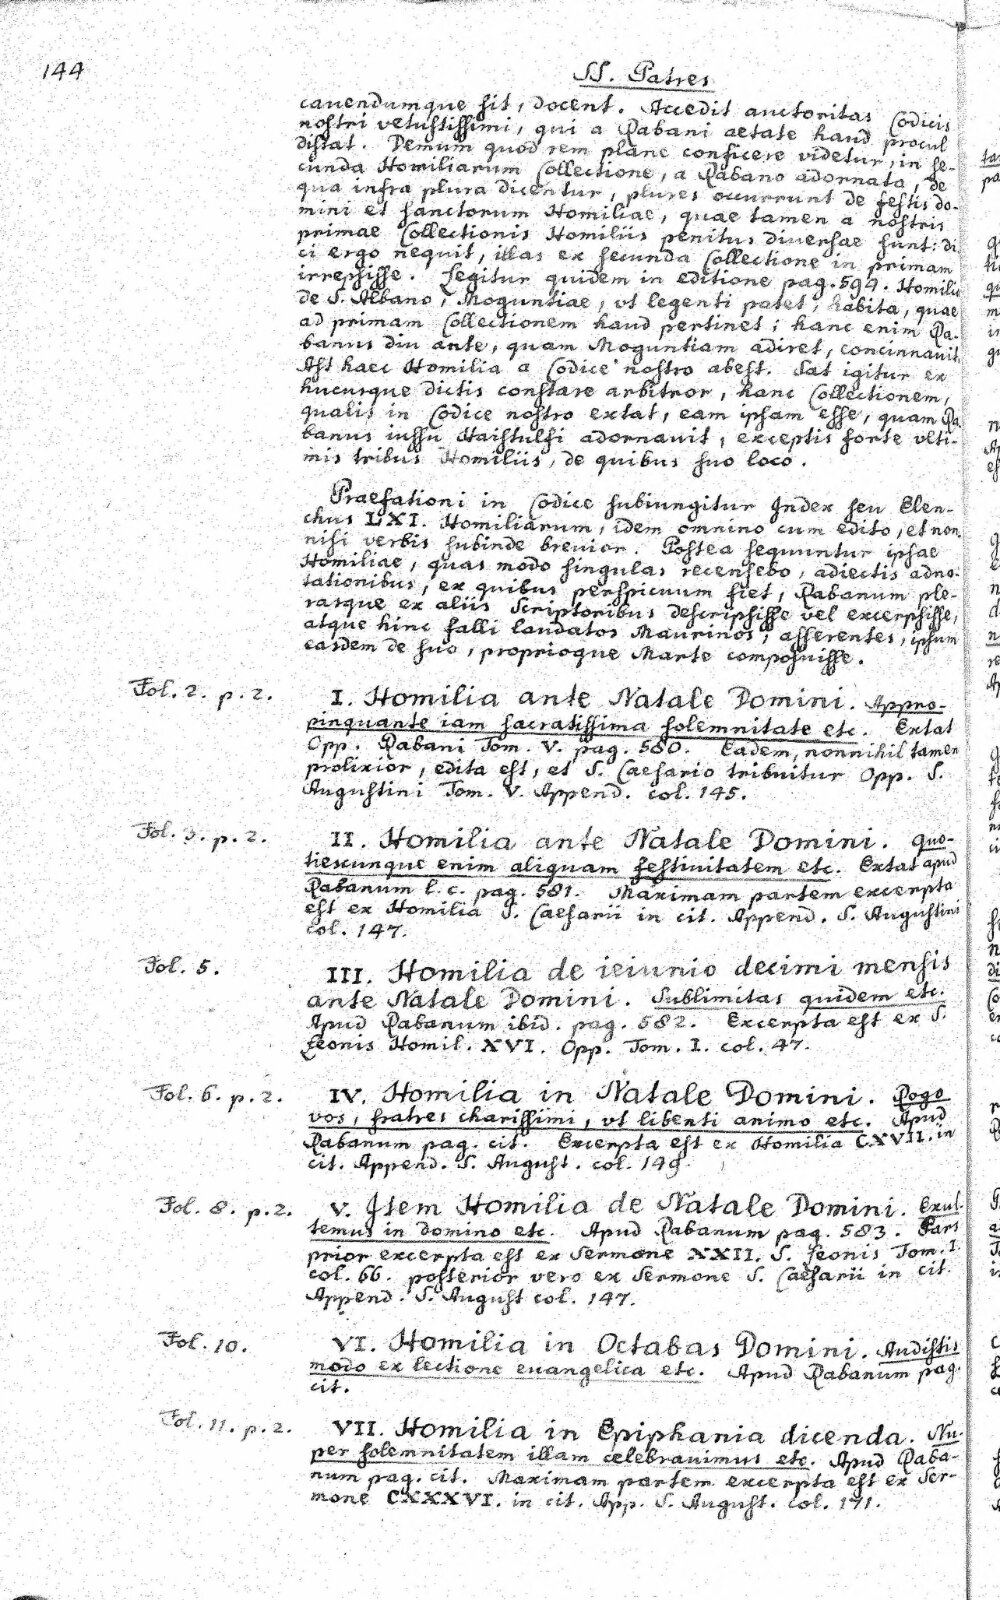 144
SS. Patres
cauendumque sit, docent. Accedit auctoritas Codicis
nostri vetustissimi, qui a Rabani aetate haud procul
distat. Demum quod rem plane conficere videtur, in se-
cunda Homiliarum Collectione, a Rabano adornata, de
qua infra plura dicentur, plures occurrunt de festis do-
mini et sanctorum Homiliae, quae tamen a nostris
primae Collectionis Homiliis penitus diversae sunt: di
ci ergo nequit, illas ex secunda Collectione in primam
irrepsisse. Legitur quidem in editione pag. 594. Homilia
de S. Albano, Moguntiae, vt legenti patet, habita, quae
ad primam Collectionem haud pertinet; hanc enim Ra-
banus diu ante, quam Moguntiam adiret, concinnauit.
Ast haec Homilia a Codice nostro abest. Sat igitur ex
hucusque dictis constare arbitror, hanc Collectionem,
qualis in Codice nostro extat, eam ipsam esse, quam Ra
banus iussu Haistulfi adornauit, exceptis forte vlti-
mis tribus Homiliis, de quibus suo loco.
Praefationi in Codice subiungitur Index seu Elen-
chus LXI. Homiliarum, idem omnino cum edito, et non
nisi verbis subinde brevior. Postea sequuntur ipsae
Homiliae, quas modo singulas recensebo, adiectis adno-
tationibus, ex quibus perspicuum fiet, Rabanum ple-
rasque ex aliis Scriptoribus descripsisse vel excerpsisse,
atque hinc falli laudatos Maurinos, asserentes, ipsum
easdem de suo, proprioque Marte composuisse.
Fol. 2. p. 2. I. Homilia ante Natale Domini. Appro-
pinquante iam sacratissima solemnitate etc. Extat
Opp. Rabani Tom. V. pag. 580. Eadem, nonnihil tamen
prolixior, edita est, et S. Caesario tribuitur Opp. S.
Augustini Tom. V. Append. col. 145.
Fol. 3. p. 2. II. Homilia ante Natale Domini. Quo-
tiescunque enim aliquam festiuitatem etc. Extat apud
Rabanum l. c. pag. 581. Maximam partem excerpta
est ex Homilia S. Caesarii in cit. Append. S. Augustini
col. 147.
Fol. 5. III. Homilia de ieiunio decimi mensis
ante Natale Domini. Sublimitas quidem etc.
Apud Rabanum ibid. pag. 582. Excerpta est ex S.
Leonis Homil. XVI. Opp. Tom. I. col. 47.
Fol. 6. p. 2. IV. Homilia in Natale Domini. Rogo
vos, fratres charissimi, vt libenti animo etc. Apud
Rabanum pag. cit. Excerpta est ex Homilia CXVII. in
cit. Append. S. August. col. 149.
Fol. 8. p. 2. V. Item Homilia de Natale Domini. Exul-
temus in domino etc. Apud Rabanum pag. 583. Pars
prior excerpta est ex Sermone XXII. S. Leonis Tom. I.
col. 66. posterior vero ex Sermone S. Caesarii in cit.
Append. S. August col. 147.
Fol. 10. VI. Homilia in Octabas Domini. Audistis
modo ex lectione euangelica etc. Apud Rabanum pag.
cit.
Fol. 11. p. 2. VII. Homilia in Epiphania dicenda. Nu-
per solemnitatem illam celebrauimus etc. Apud Raba-
num pag. cit. Maximam partem excerpta est ex Ser-
mone CXXXVI. in cit. App. S. August. col. 171.